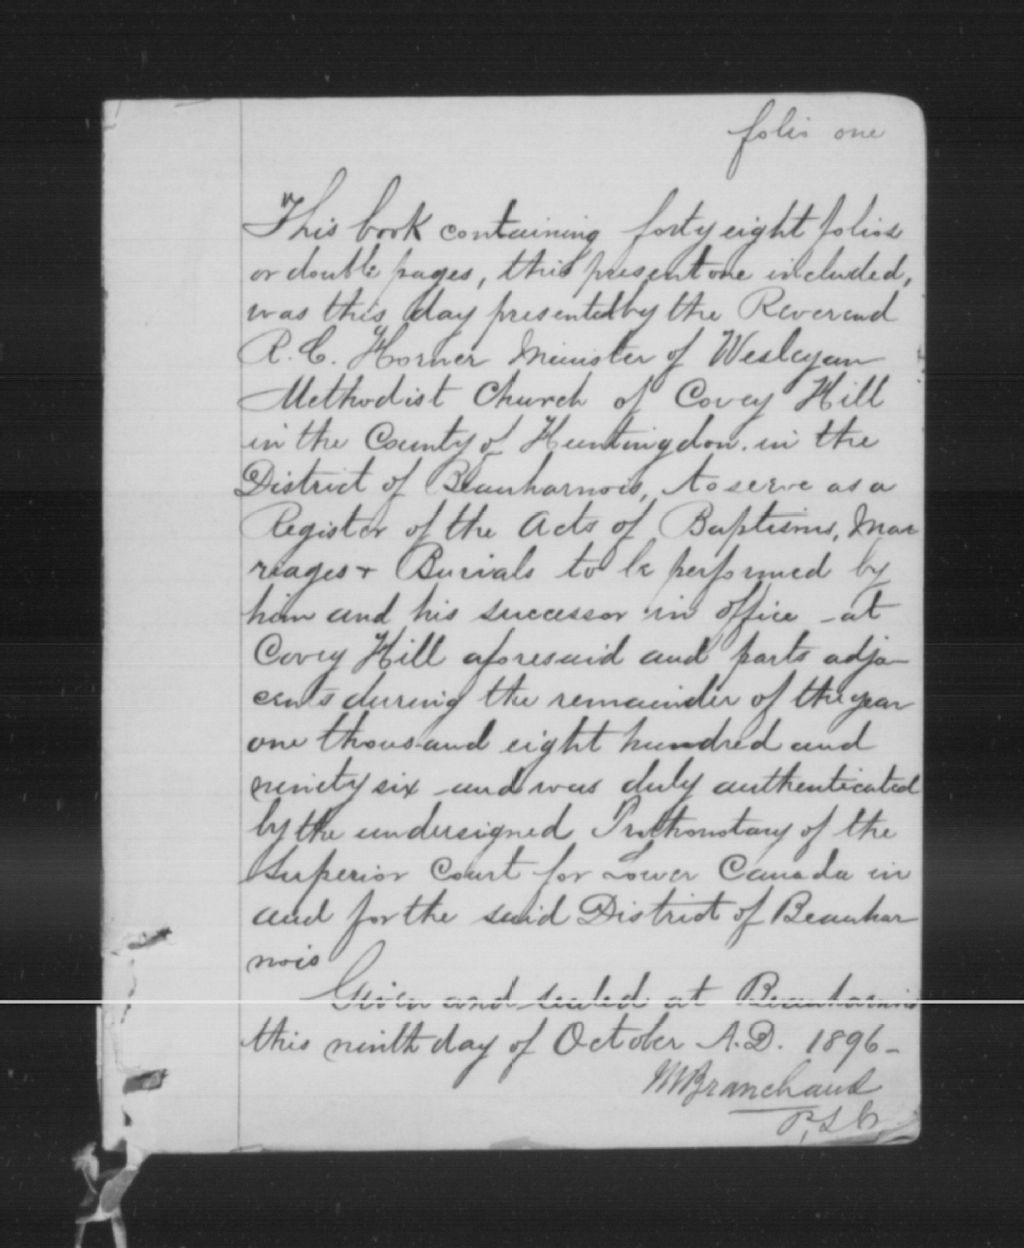 folio one
This book containing forty eight folios
or double pages, this present one included,
was this day presented by the Reverend
R. C. Horner Minister of Wesleyan
Methodist Church of Covey Hill
in the County of Huntingdon. in the
District of Beauharnois, to serve as a
Register of the Acts of Baptisms, Mar
riages + Burials to be performed by
him and his successor in office - at
Covey Hill aforesaid and parts adja-
cents during the remainder of the year
one thousand eight hundred and
ninety six - and was duly authenticated
by the undersigned Prothonotary of the
Superior Court for Lower Canada in
and for the said District of Beauhar
nois
Given and sealed at Beauharnois
this ninth day of October A.D. 1896 -
M Branchaud
P.S.C.